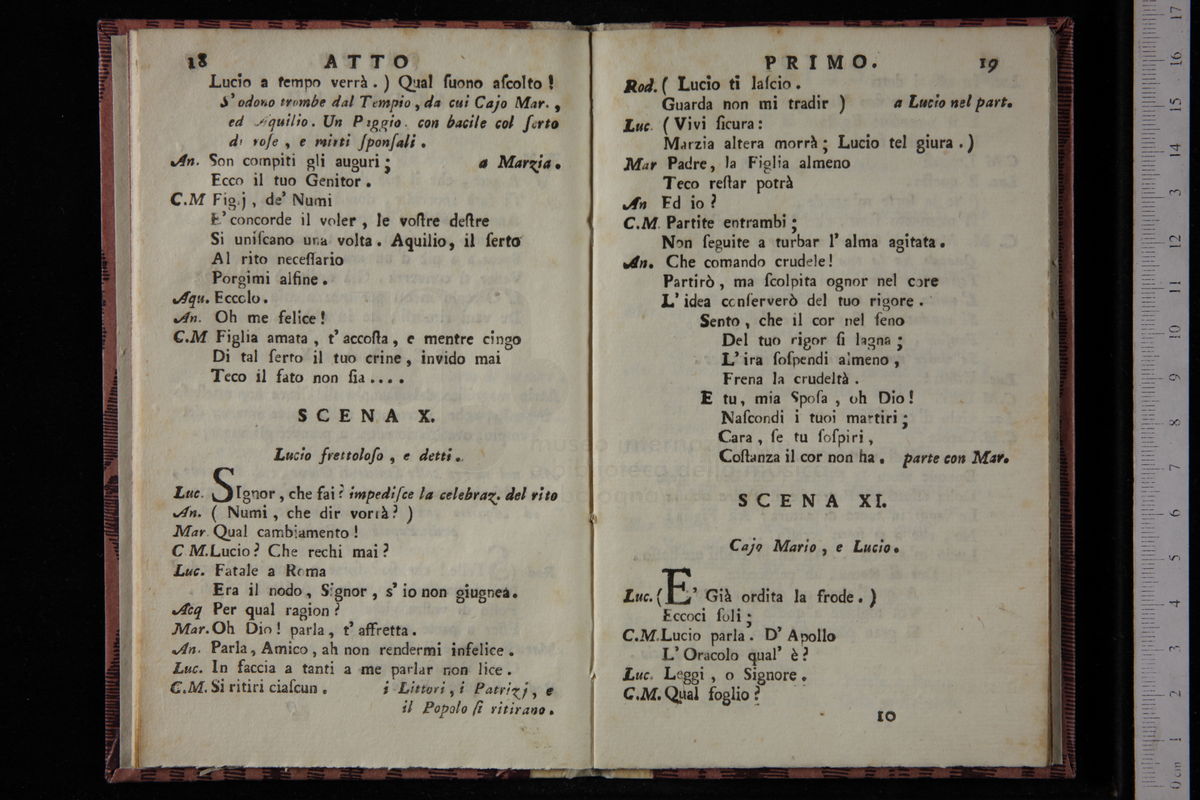 18 ATTO
Lucio a tempo verrà. ) Qual ſuono aſcolto !
S'odono trombe dal Tempio, da cui Cajo Mar.,
ed Aquilio. Un Paggio con bacile col ſerto
di roſe, e mirti ſponſali.
An. Son compiti gli auguri; a Marzia.
Ecco il tuo Genitor.
C.M Figj, de' Numi
E' concorde il voler, le voſtre deſtre
Si uniſcano una volta. Aquilio, il ſerto
Al rito neceſſario
Porgimi alfine.
Aqu. Eccolo.
An. Oh me felice!
C.M Figlia amata, t'accoſta, e mentre cingo
Di tal ſerto il tuo crine, invido mai
Teco il fato non ſia....
SCENA X.
Lucio frettoloſo, e detti.
Luc. SIgnor, che fai? impediſce la celebraz. del rito
An. ( Numi, che dir vorrà? )
Mar Qual cambiamento!
C M. Lucio? Che rechi mai?
Luc. Fatale a Roma
Era il nodo, Signor, s'io non giugnea.
Acq Per qual ragion?
Mar. Oh Dio! parla, t'affretta.
An. Parla, Amico, ah non rendermi infelice.
Luc. In faccia a tanti a me parlar non lice.
C.M. Si ritiri ciaſcun. i Littori, i Patrizj, e
il Popolo ſi ritirano.
PRIMO. 19
Rod. ( Lucio ti laſcio.
Guarda non mi tradir ) a Lucio nel part.
Luc. ( Vivi ſicura:
Marzia altera morrà; Lucio tel giura. )
Mar Padre, la Figlia almeno
Teco reſtar potrà
An Ed io?
C.M. Partite entrambi;
Non ſeguite a turbar l'alma agitata.
An. Che comando crudele!
Partirò, ma ſcolpita ognor nel core
L'idea conſerverò del tuo rigore.
Sento, che il cor nel ſeno
Del tuo rigor ſi lagna;
L'ira ſoſpendi almeno,
Frena la crudeltà.
E tu, mia Spoſa, oh Dio!
Naſcondi i tuoi martiri;
Cara, ſe tu ſoſpiri,
Coſtanza il cor non ha. parte con Mar.
SCENA XI.
Cajo Mario, e Lucio.
Luc. ( E' Già ordita la frode. )
Eccoci ſoli;
C.M. Lucio parla. D'Apollo
L'Oracolo qual' è?
Luc. Leggi, o Signore.
C.M. Qual foglio?
10